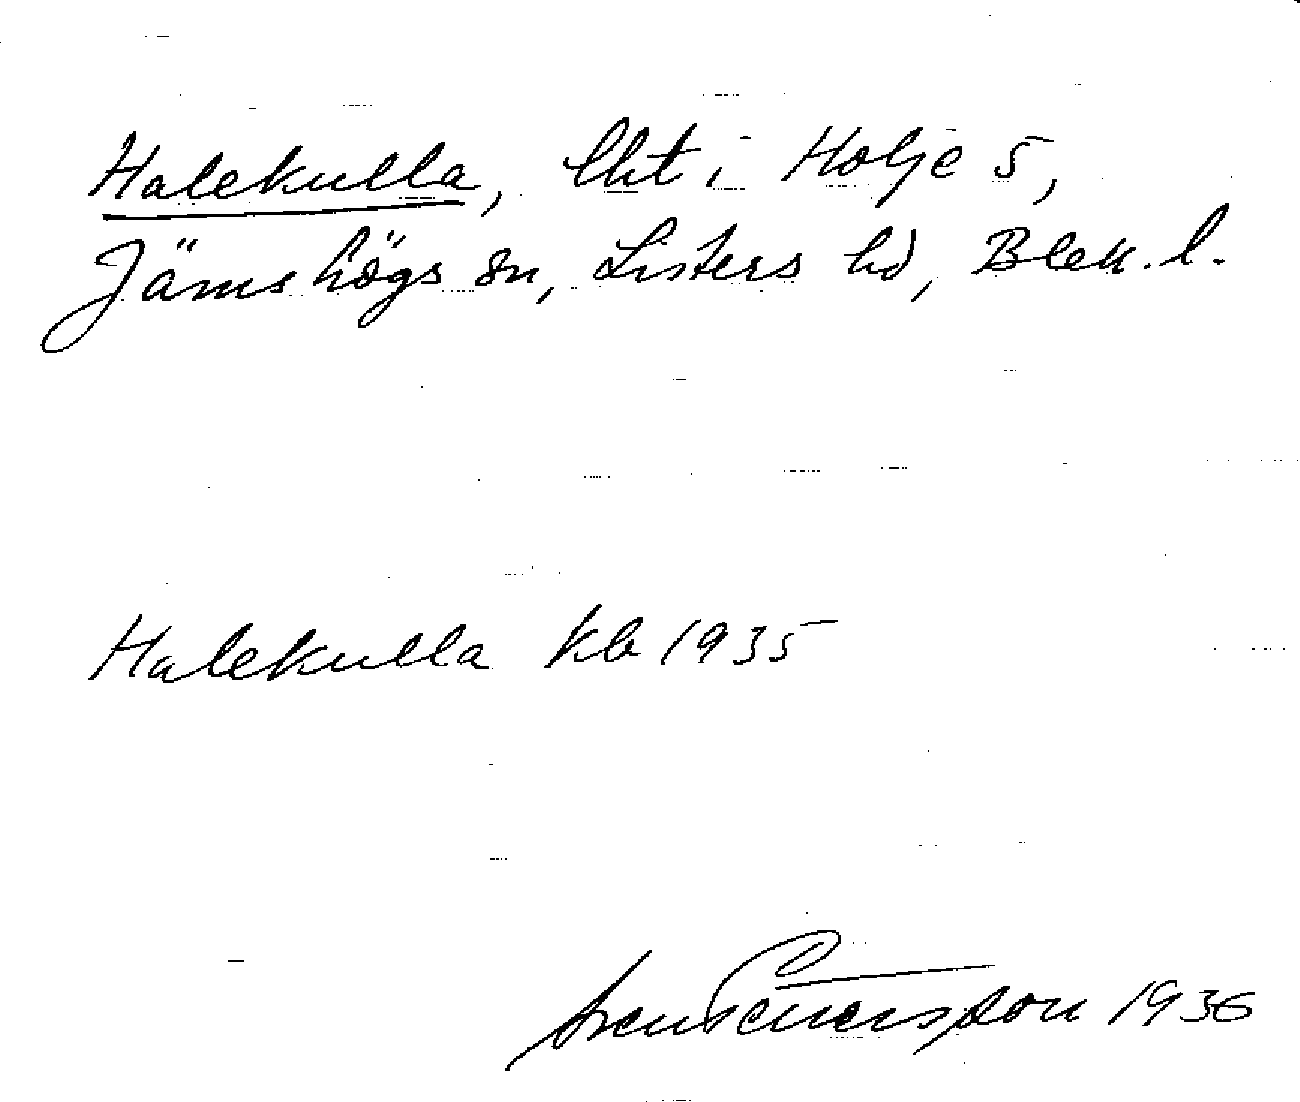 Halekulla, lht i Holje 5,
Jämshögs sn, Listers hd, Blek. l.
Halekulla kb 1935
Sven Pettersson 1936